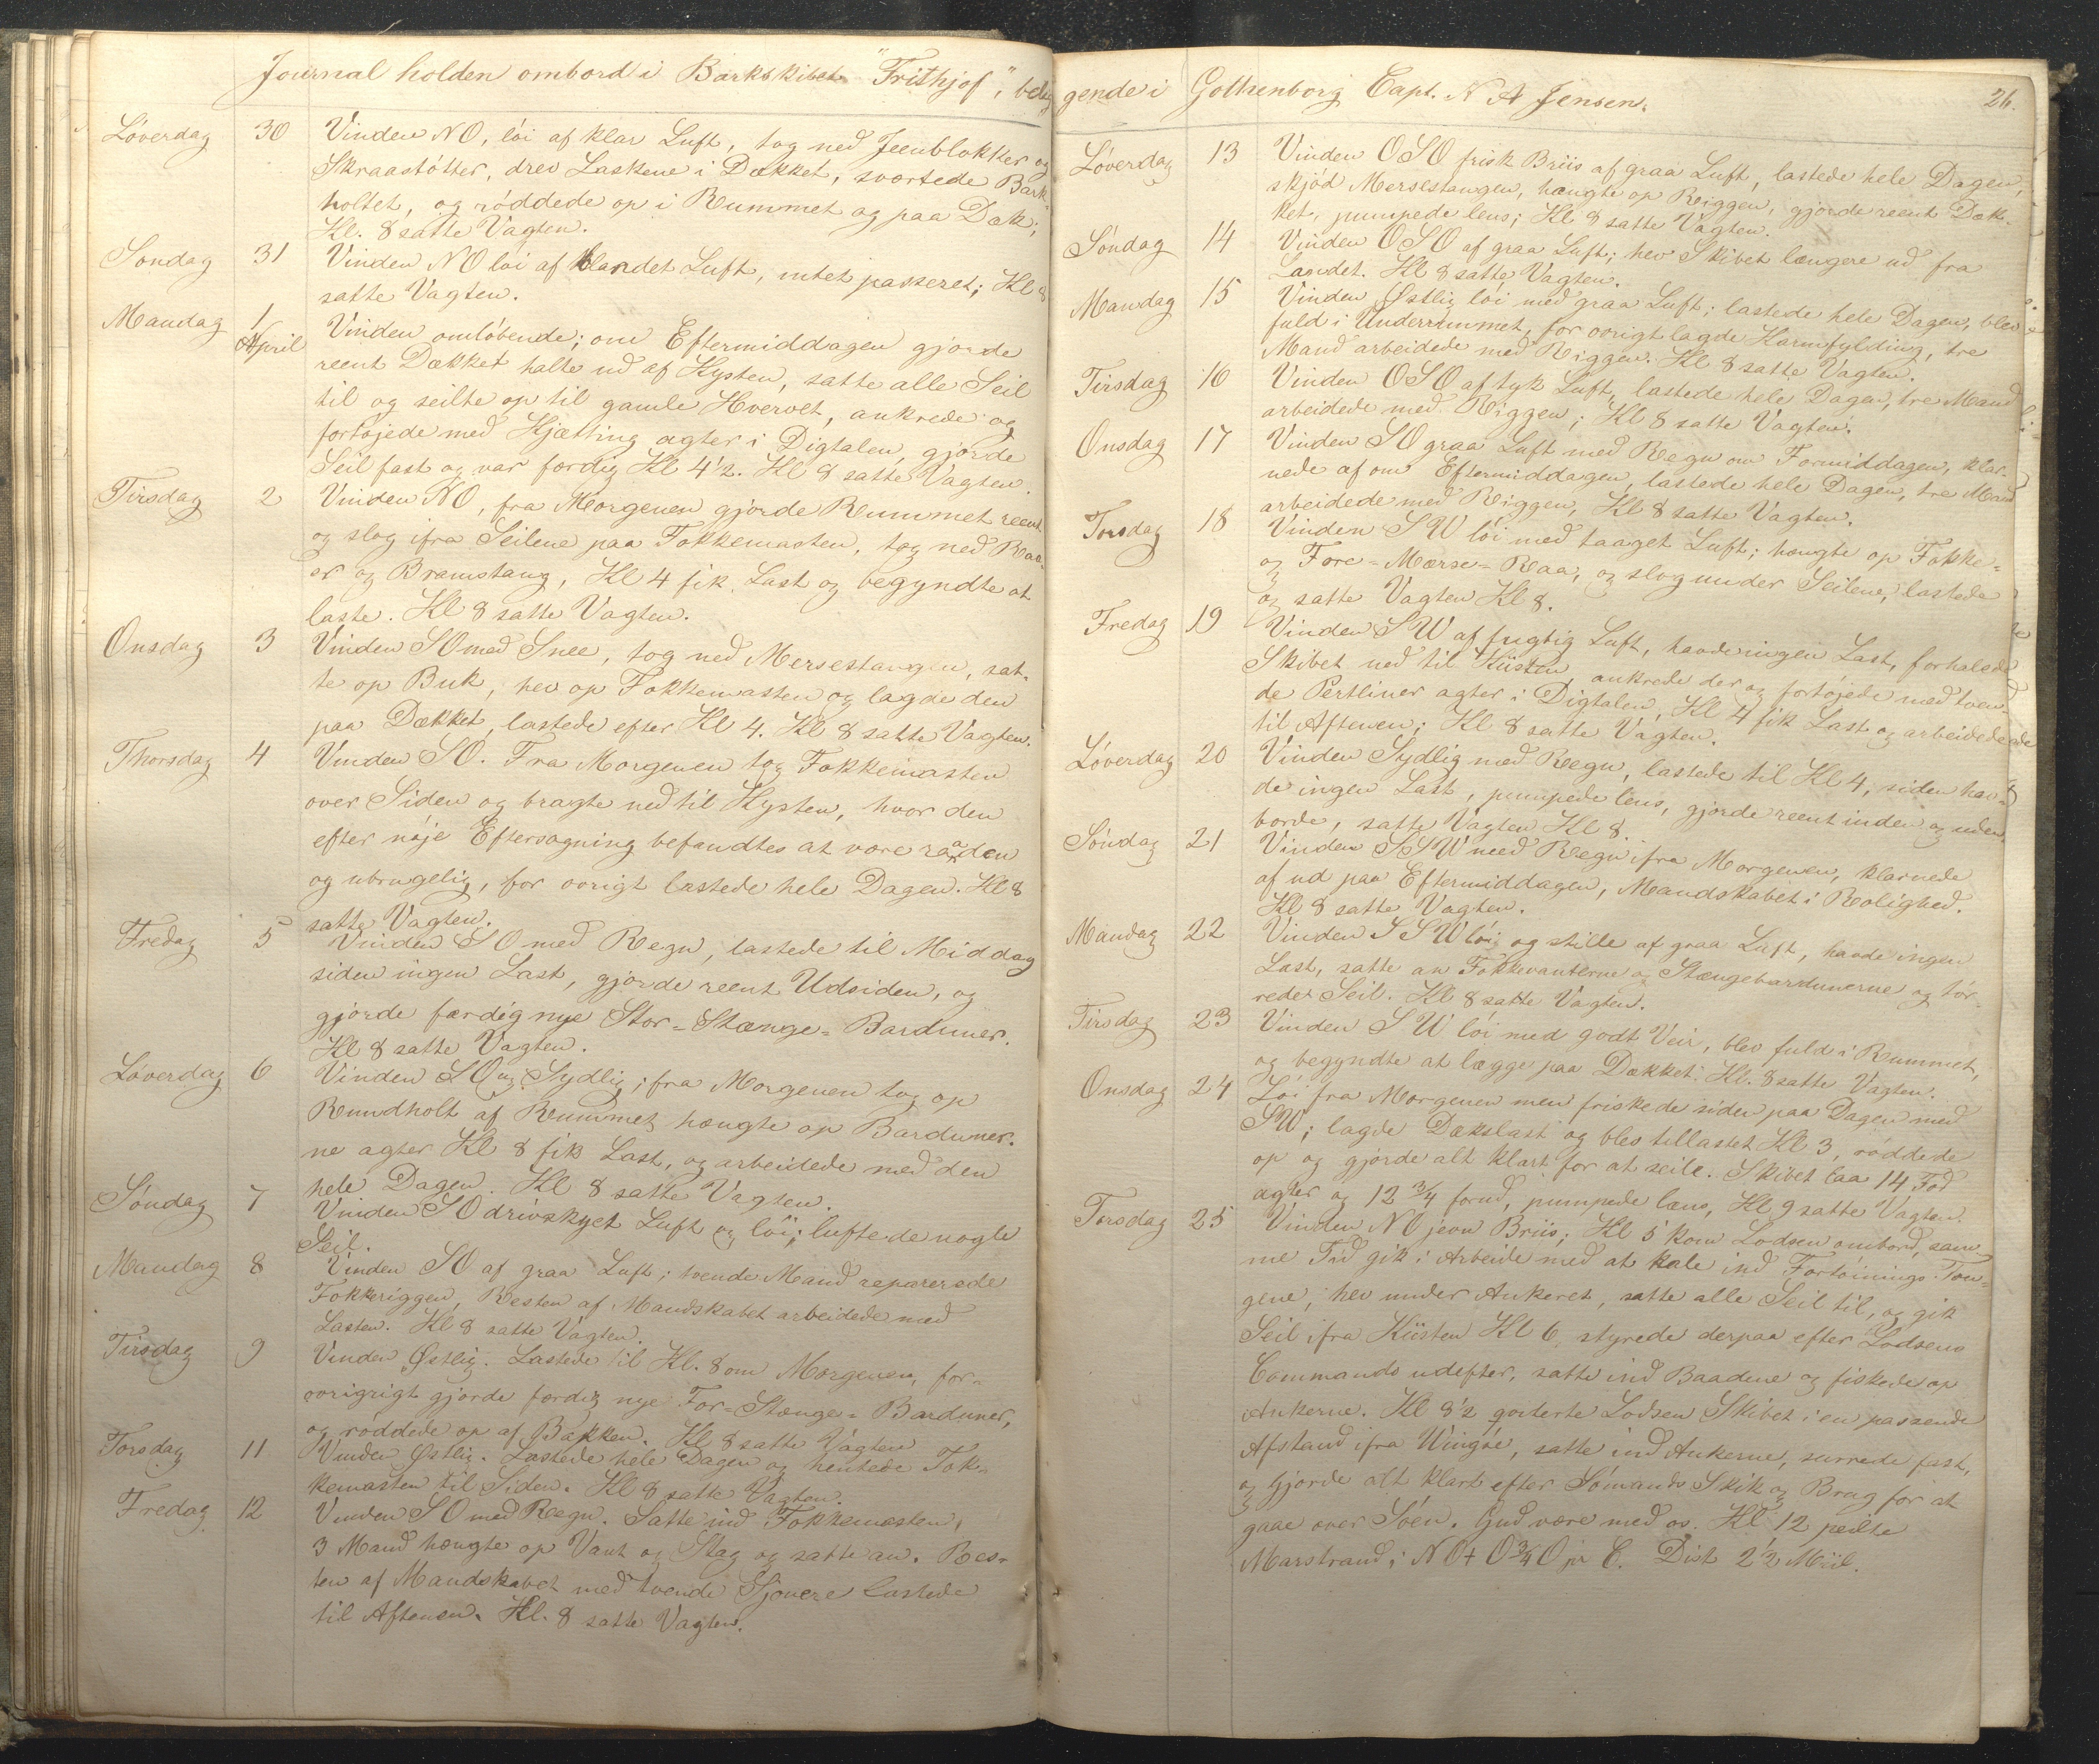 Journal holden ombord i Barkskibet "Frithjof", belig
Løverdag 30 Vinden NO, löi af klar Luft, tog ned Jeenblokker og
Skraastötter, drev Laskene i Dækket, svortede Bark-
holtet, og röddede op i Rummet og paa Dæk;
Kl. 8 satte Vagten.
Søndag 31 Vinden NO löi af blandet Luft, intet passeret; Kl 8
satte Vagten.
Mandag 1 April Vinden omlöbende; om Eftermiddagen gjorde
reent Dækket halte ud af Kysten, satte alle Seil
til og seilte op til gamle Hvervet, ankrede og
fortöjede med Kjætting agter i Digtalen, gjorde
Seil fast og var færdig Kl 4½. Kl 8 satte Vagten.
Tirsdag 2 Vinden NO, fra Morgenen gjorde Rummet reent
og slog ifra Seilene paa Fokkemasten, tog ned Raa-
er og Bramstang, Kl 4 fik Last og begyndte at
laste. Kl 8 satte Vagten.
Onsdag 3 Vinden SO med Snee, tog ned Mersestangen, sat-
te op Buk, hev op Fokkemasten og lagde den
paa Dækket, lastede efter Kl 4. Kl 8 satte Vagten.
Thorsdag 4 Vinden SO. Fra Morgenen tog Fokkemasten
over Siden og bragte ned til Kysten, hvor den
efter nöje Eftersøgning befandtes at være raaden
og ubrugelig, for övrigt lastede hele Dagen. Kl 8
satte Vagten.
Fredag 5 Vinden SO med Regn, lastede til Middag
siden ingen Last, gjorde reent Udsiden, og
gjorde færdig nye Stor-Stænge-Barduner.
Kl 8 satte Vagten.
Løverdag 6 Vinden SO og Sydlig; fra Morgenen tog op
Rundholt af Rummet hængte op Barduner-
ne agter Kl 8 fik Last, og arbeidede med den
hele Dagen. Kl 8 satte Vagten.
Søndag 7 Vinden SO drivskyet Luft og löi; luftede nogle
Seil.
Mandag 8 Vinden SO af graa Luft; tvende Mand reparerede
Fokkeriggen, Resten af Mandskabet arbeidede med
Lasten. Kl 8 satte Vagten.
Tirsdag 9 Vinden Østlig. Lastede til Kl. 8 om Morgenen, for-
övrigrigt gjorde færdig nye For-Stænge-Barduner,
og röddede op af Bakken. Kl 8 satte Vagten
Torsdag 11 Vinden Østlig. Lastede hele Dagen og hentede Fok-
kemasten til Siden. Kl 8 satte Vagten.
Fredag 12 Vinden SO med Regn. Satte ind Fokkemasten,
3 Mand hængte op Vant og Stag og satte an. Res-
ten af Mandskabet med tvende Sjouere lastede
til Aftenen. Kl. 8 satte Vagten.
gende i Gothenborg Capt. N A Jensen.
26.
Løverdag 13 Vinden OSO frisk Briis af graa Luft, lastede hele Dagen,
skjöd Mersestangen, hængte op Riggen, gjorde reent Dæk-
ket, pumpede lens; Kl. 8 satte Vagten.
Søndag 14 Vinden OSO af graa Luft; hev Skibet længere ud fra
Landet. Kl 8 satte Vagten.
Mandag 15 Vinden Østlig löi med graa Luft; lastede hele Dagen, blev
fuld i Underrummet, for övrigt lagde Karmfylding, tre
Mand arbeidede med Riggen. Kl 8 satte Vagten.
Tirsdag 16 Vinden OSO af tyk Luft, lastede hele Dagen, tre Mand
arbeidede med Riggen; Kl 8 satte Vagten.
Onsdag 17 Vinden SO graa Luft med Regn om Formiddagen, klar-
nede af om Eftermiddagen, lastede hele Dagen, tre Mand
arbeidede med Riggen, Kl 8 satte Vagten.
Torsdag 18 Vinden SW löi med taaget Luft; hængte op Fokke-
og Fore-Mærse-Raa, og slog under Seilene, lastede
og satte Vagten Kl 8.
Fredag 19 Vinden SW af fugtig Luft, havde ingen Last, forhalede
Skibet ned til Küsten, ankrede der og fortöjede med tven-
de Pertliner agter i Digtalen, Kl 4 fik Last og arbeidede
til Aftenen; Kl 8 satte Vagten.
Løverdag 20 Vinden Sydlig med Regn, lastede til Kl 4, siden hav-
de ingen Last, pumpede lens, gjorde reent inden og uden
borde, satte Vagten Kl 8.
Søndag 21 Vinden SSW med Regn ifra Morgenen, klarnede
af ud paa Eftermiddagen, Mandskabet i Rolighed.
Kl 8 satte Vagten.
Mandag 22 Vinden SSW löi og stille af graa Luft, havde ingen
Last, satte an Fokkevanterne og Stængebardunerne og tör-
rede Seil. Kl 8 satte Vagten.
Tirsdag 23 Vinden SW löi med godt Veir, blev fuld i Rummet,
og begyndte at lægge paa Dækket. Kl. 8 satte Vagten.
Onsdag 24 Löi fra Morgenen men friskede siden paa Dagen med
SW; lagde Dækslast og blev tillastet Kl 3, röddede
op og gjorde alt klart for at seile. Skibet laa 14 Fod
agter og 12 ¾ forud, pumpede læns, Kl 9 satte Vagten.
Torsdag 25 Vinden NO jevn Briis; Kl 5 kom Lodsen ombord, sam-
me Tid gik i Arbeide med at hale ind Fortöinings Tou-
gene, hev under Ankeret, satte alle Seil til, og gik
Seil ifra Küsten Kl 6, styrede derpaa efter Lodsens
Commando udefter, satte ind Baadene og fiskede op
Ankerne. Kl 8½ qviterte Lodsen Skibet i en passende
Afstand ifra Wingöe, satte ind Ankerne, surrede fast,
og gjorde alt klart efter Sömands Skik og Brug for at
gaae over Söen. Gud være med os. Kl 12 peilte
Marstrand i NO+O¾O pr C. Dist 2½ Miil.